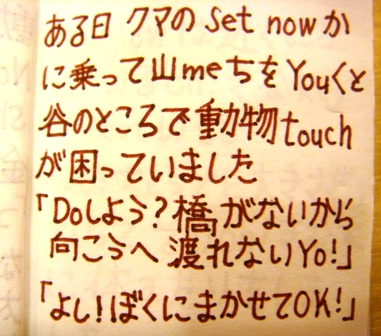 ある日 クマの Set now か
に乗って山meちをYouくと
谷のところで動物touch
が困っていました
「Doしよう？橋がないから
向こうへ渡れないYo！」
「よし！ぼくにまかせてOK！」